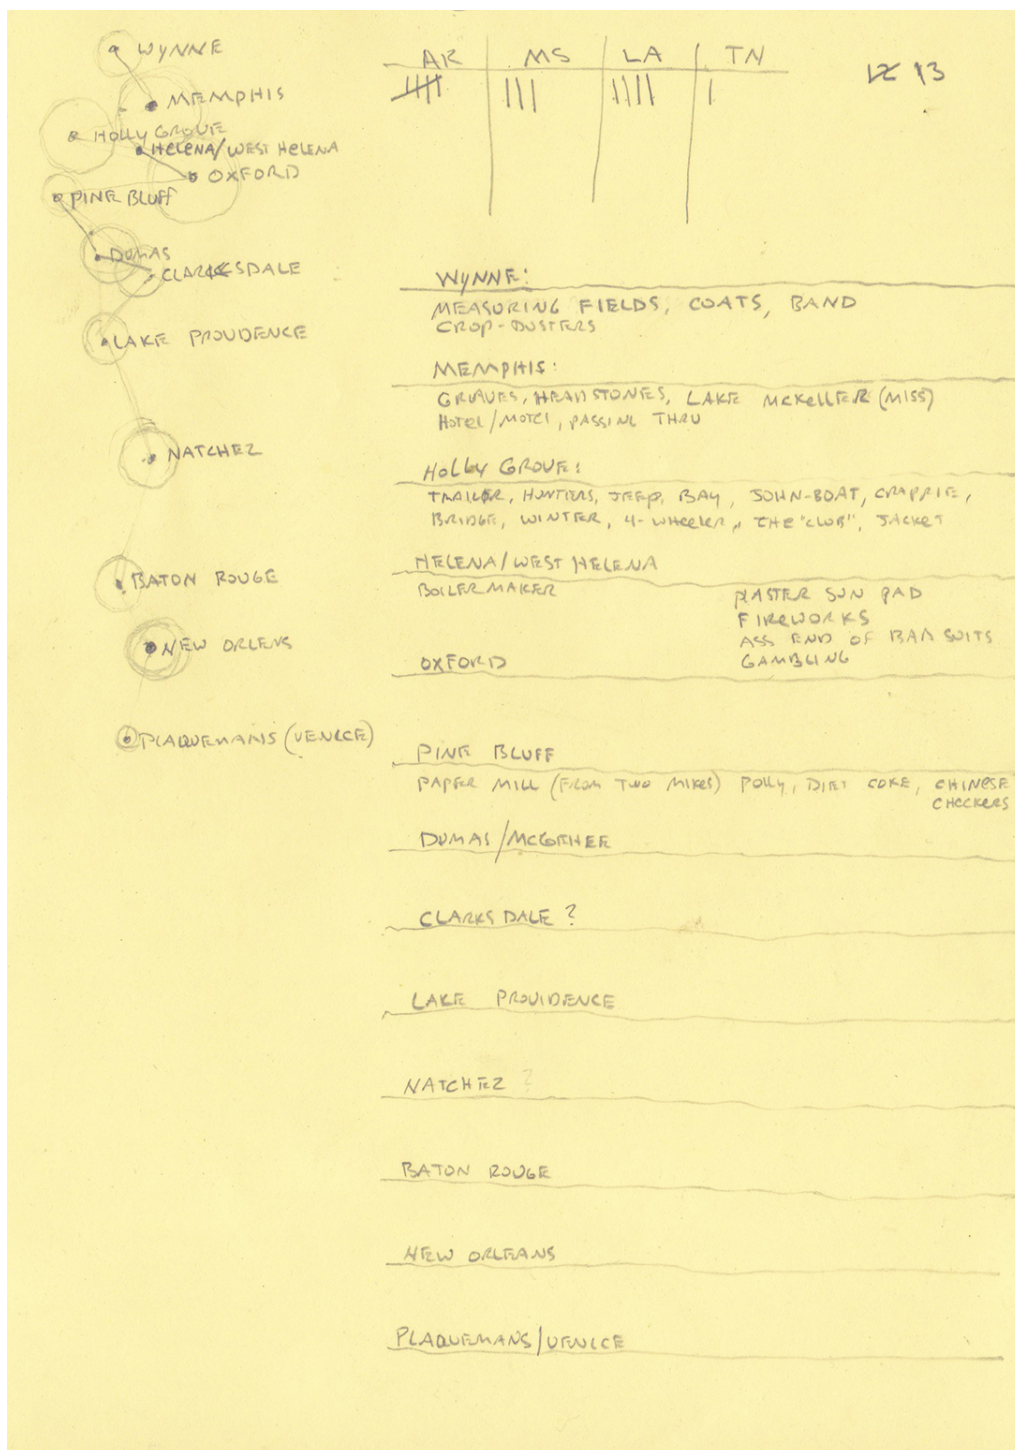 WYNNE
MEMPHIS
HOLLY GROVE
HELENA/WEST HELENA
OXFORD
PINE BLUFF
DUMAS
CLARKSDALE
LAKE PROVIDENCE
NATCHEZ
BATON ROUGE
NEW ORLENS
PLAQUEMANS (VENICE)
AR MS LA TN
12 13
WYNNE:
MEASURING FIELDS, COATS, BAND
CROP-DUSTERS
MEMPHIS:
GRAVES, HEADSTONES, LAKE MCKELLER (MISS)
HOTEL/MOTEL, PASSING THRU
HOLLY GROVE:
TRAILER, HUNTERS, JEEP, BAY, JOHN-BOAT, CRAPPIE,
BRIDGE, WINTER, 4-WHEELER, THE "CLUB", JACKET
HELENA/WEST HELENA
BOILERMAKER
PLASTER SUN PAD
FIREWORKS
ASS END OF BAD SUITS
GAMBLING
OXFORD
PINE BLUFF
PAPER MILL (FROM TWO MIKES) POLLY, DIET COKE, CHINESE
CHECKERS
DUMAS/MCGEHEE
CLARKSDALE?
LAKE PROVIDENCE
NATCHEZ?
BATON ROUGE
NEW ORLEANS
PLAQUEMANS/VENICE